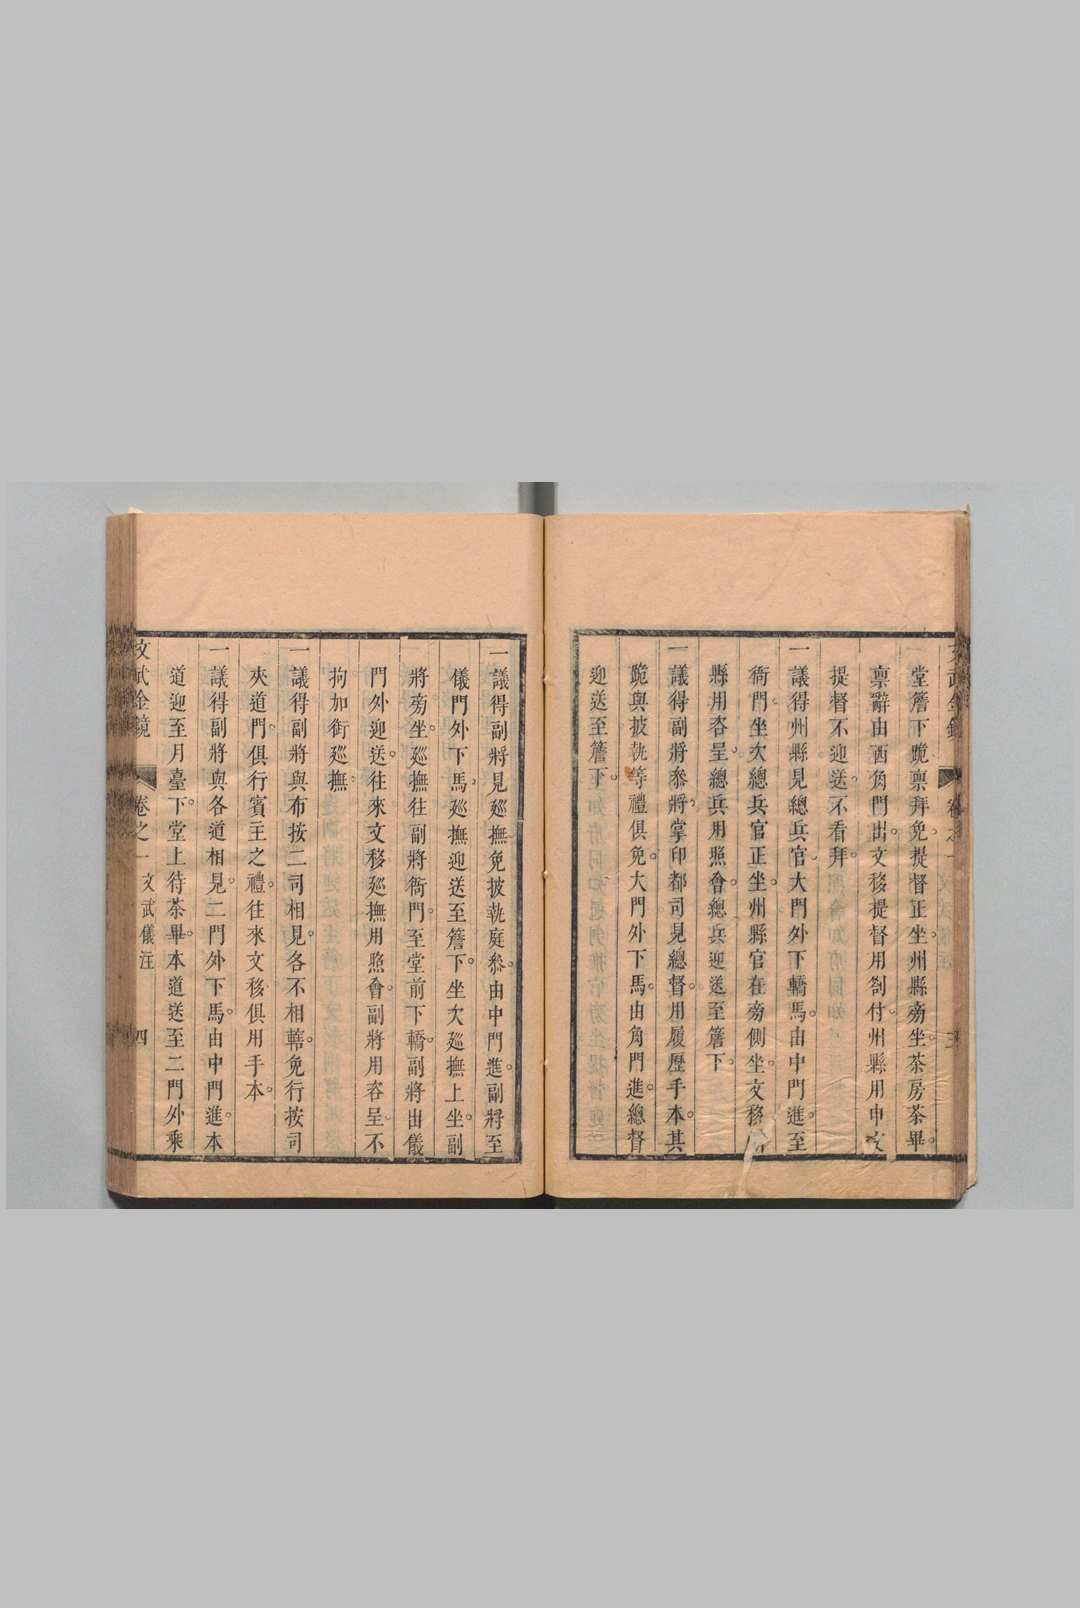 堂簷下跪稟拜免提督正坐。州縣旁坐。茶房茶畢。
稟辭由西角門出。文移提督用劄付。州縣用申文
提督不迎送。不看拜。
一議得州縣見總兵官。大門外下轎馬。由中門進。至
衙門。坐次總兵官正坐。州縣官在旁側坐。文移
縣用咨呈。總兵用照會。總兵迎送至簷下。
一議得副將參將。掌印都司見總督。用履歷手本。其
跪與披執等禮俱免。大門外下馬。由角門進。總督
迎送至簷下。
一議得副將見廵撫免披執庭參。由中門進。副將至
儀門外下馬。廵撫迎送至簷下。坐次廵撫上坐。副
將旁坐。廵撫往副將衙門。至堂前下轎。副將出儀
門外迎送。往來文移廵撫用照會。副將用咨呈。不
拘加銜廵撫。
一議得副將與布按二司相見。各不相轄。免行按司
夾道門。俱行賓主之禮。往來文移俱用手本。
一議得副將與各道相見。二門外下馬。由中門進。本
道迎至月臺下。堂上待茶畢。本道送至二門外乘
文武金鏡
卷之一
文武儀注
四